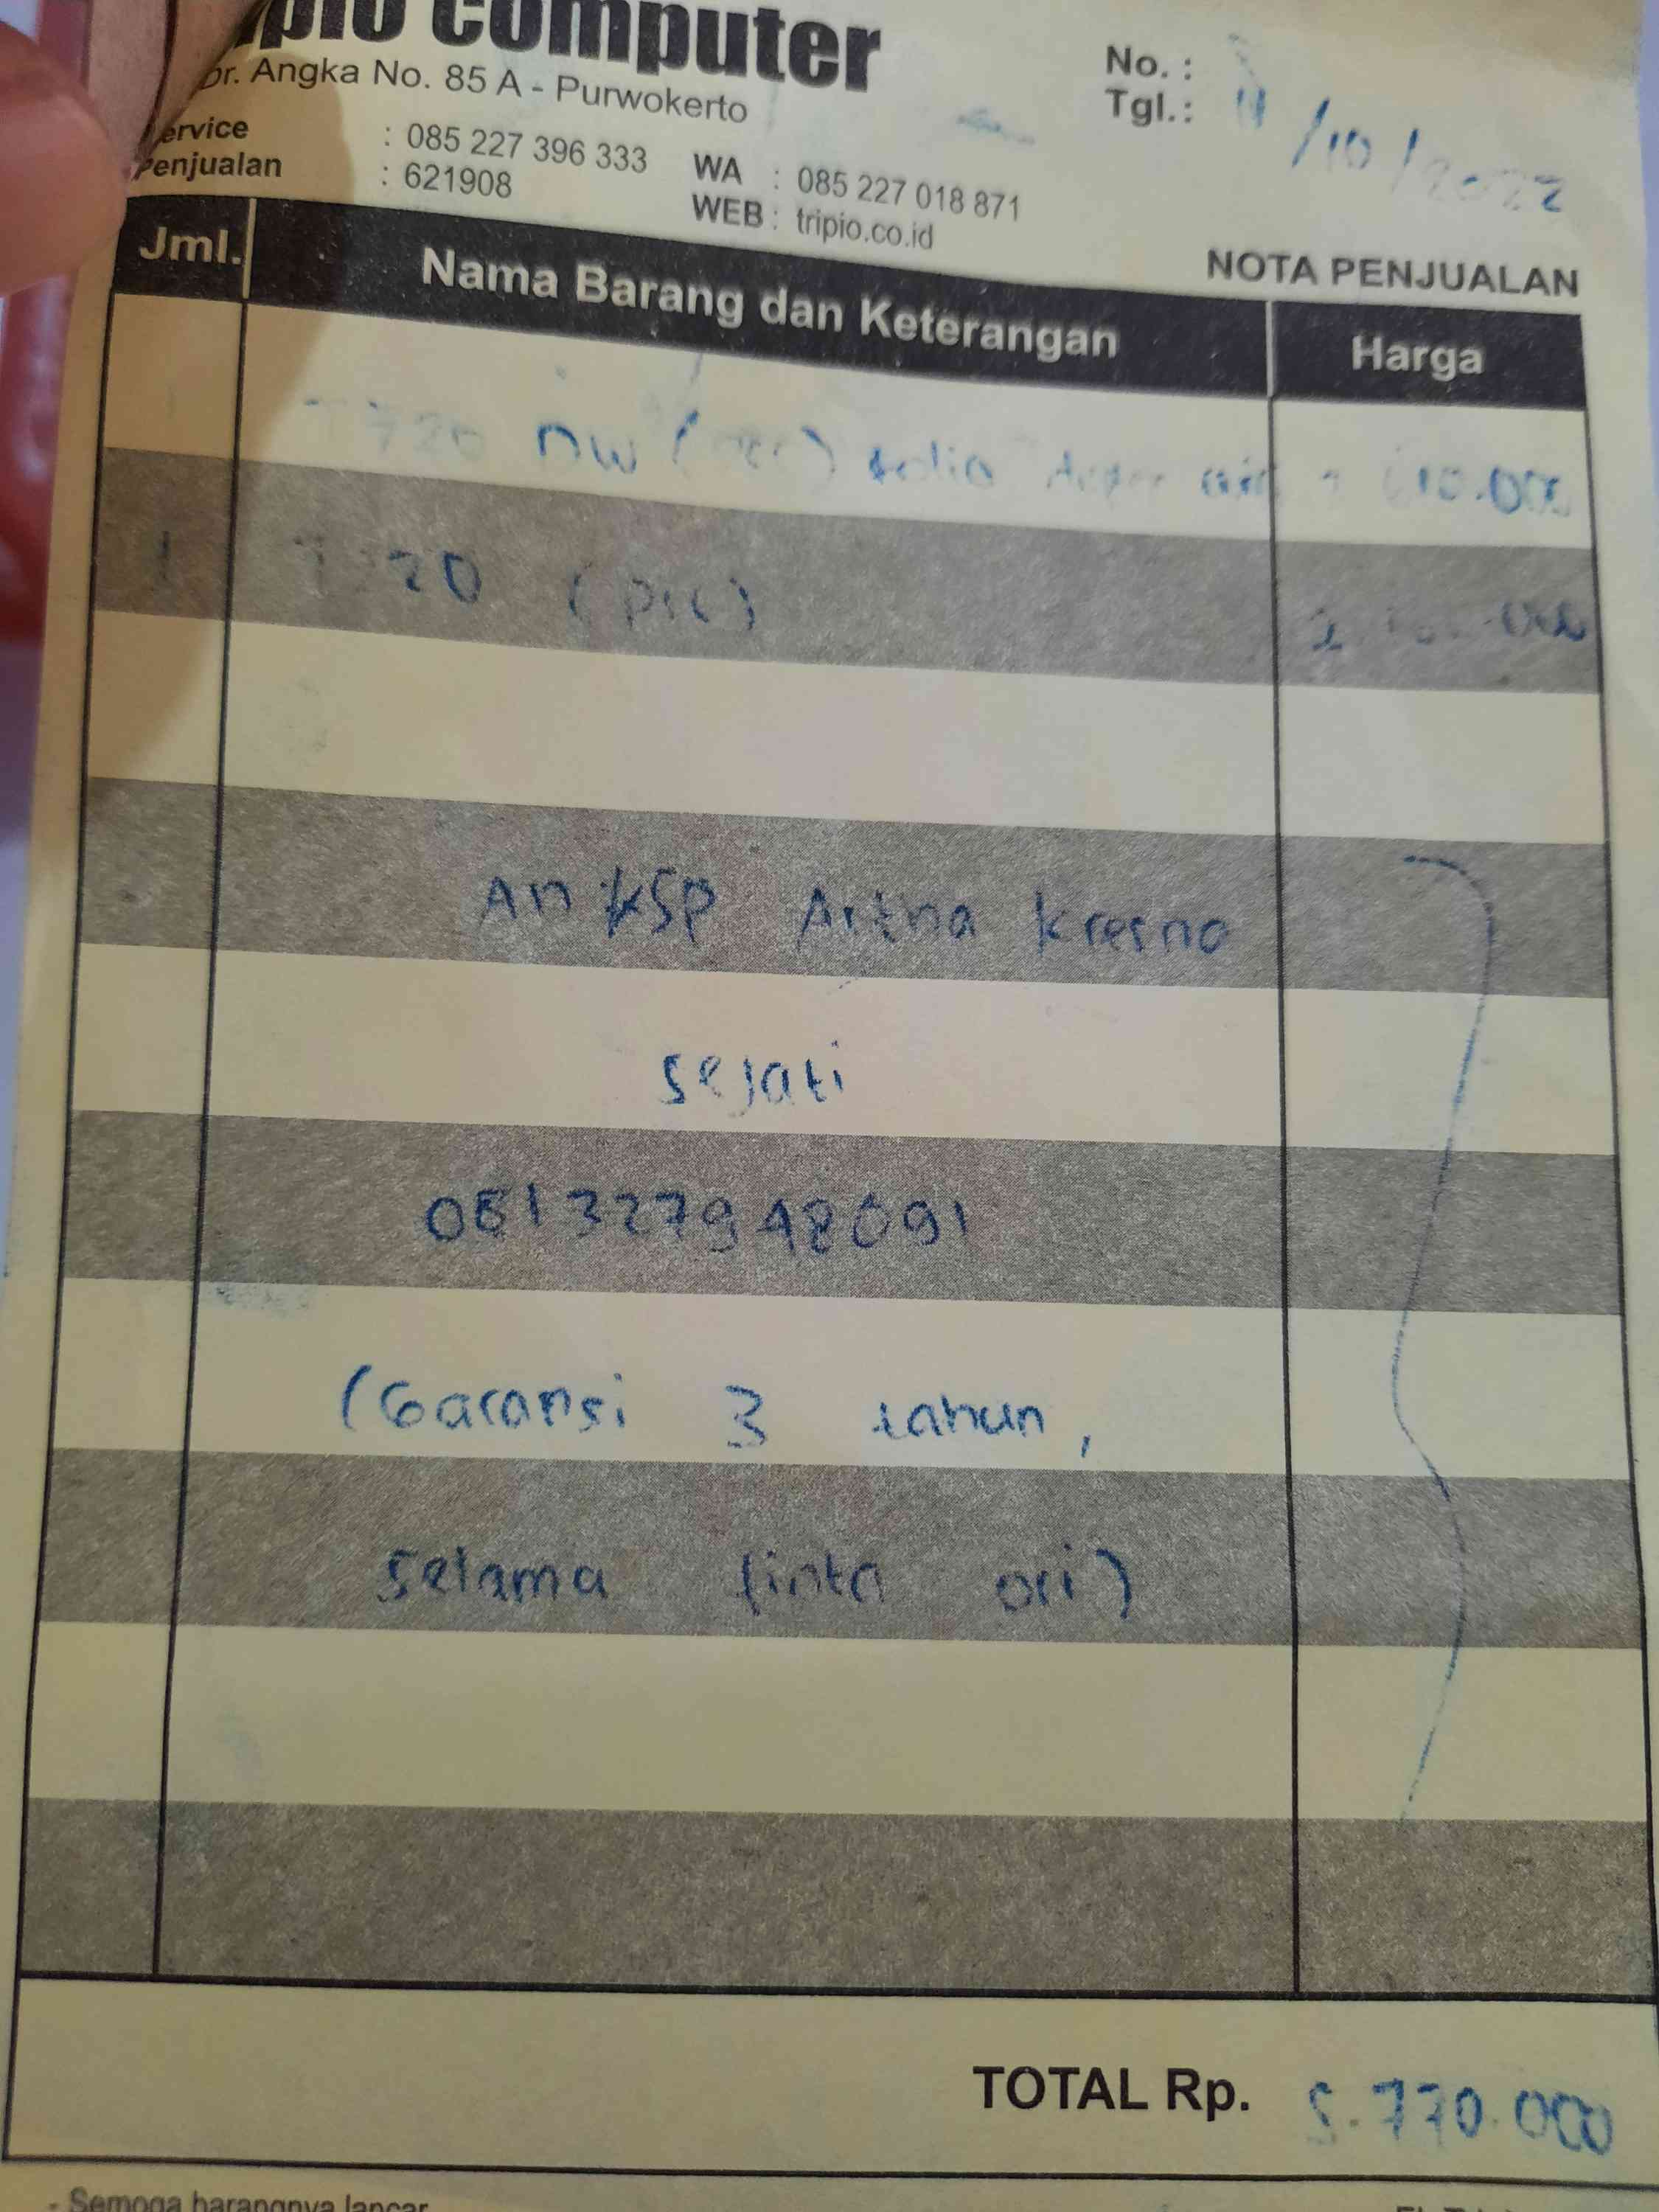 Computer
Dr. Angka No. 85 A - Purwokerto
No. :
Tgl. : 11/10/2022
Service : 085 227 396 333
Penjualan : 621908
WA : 085 227 018 871
WEB : tripio.co.id
NOTA PENJUALAN
Jml. Nama Barang dan Keterangan Harga
T720 DW ( ) folio
1 (pic)
An KSP Artha Kresno
sejati
081327948091
(Garansi 3 tahun,
selama tinta ori)
TOTAL Rp. 5.770.000
- Semoga barangnya lancar